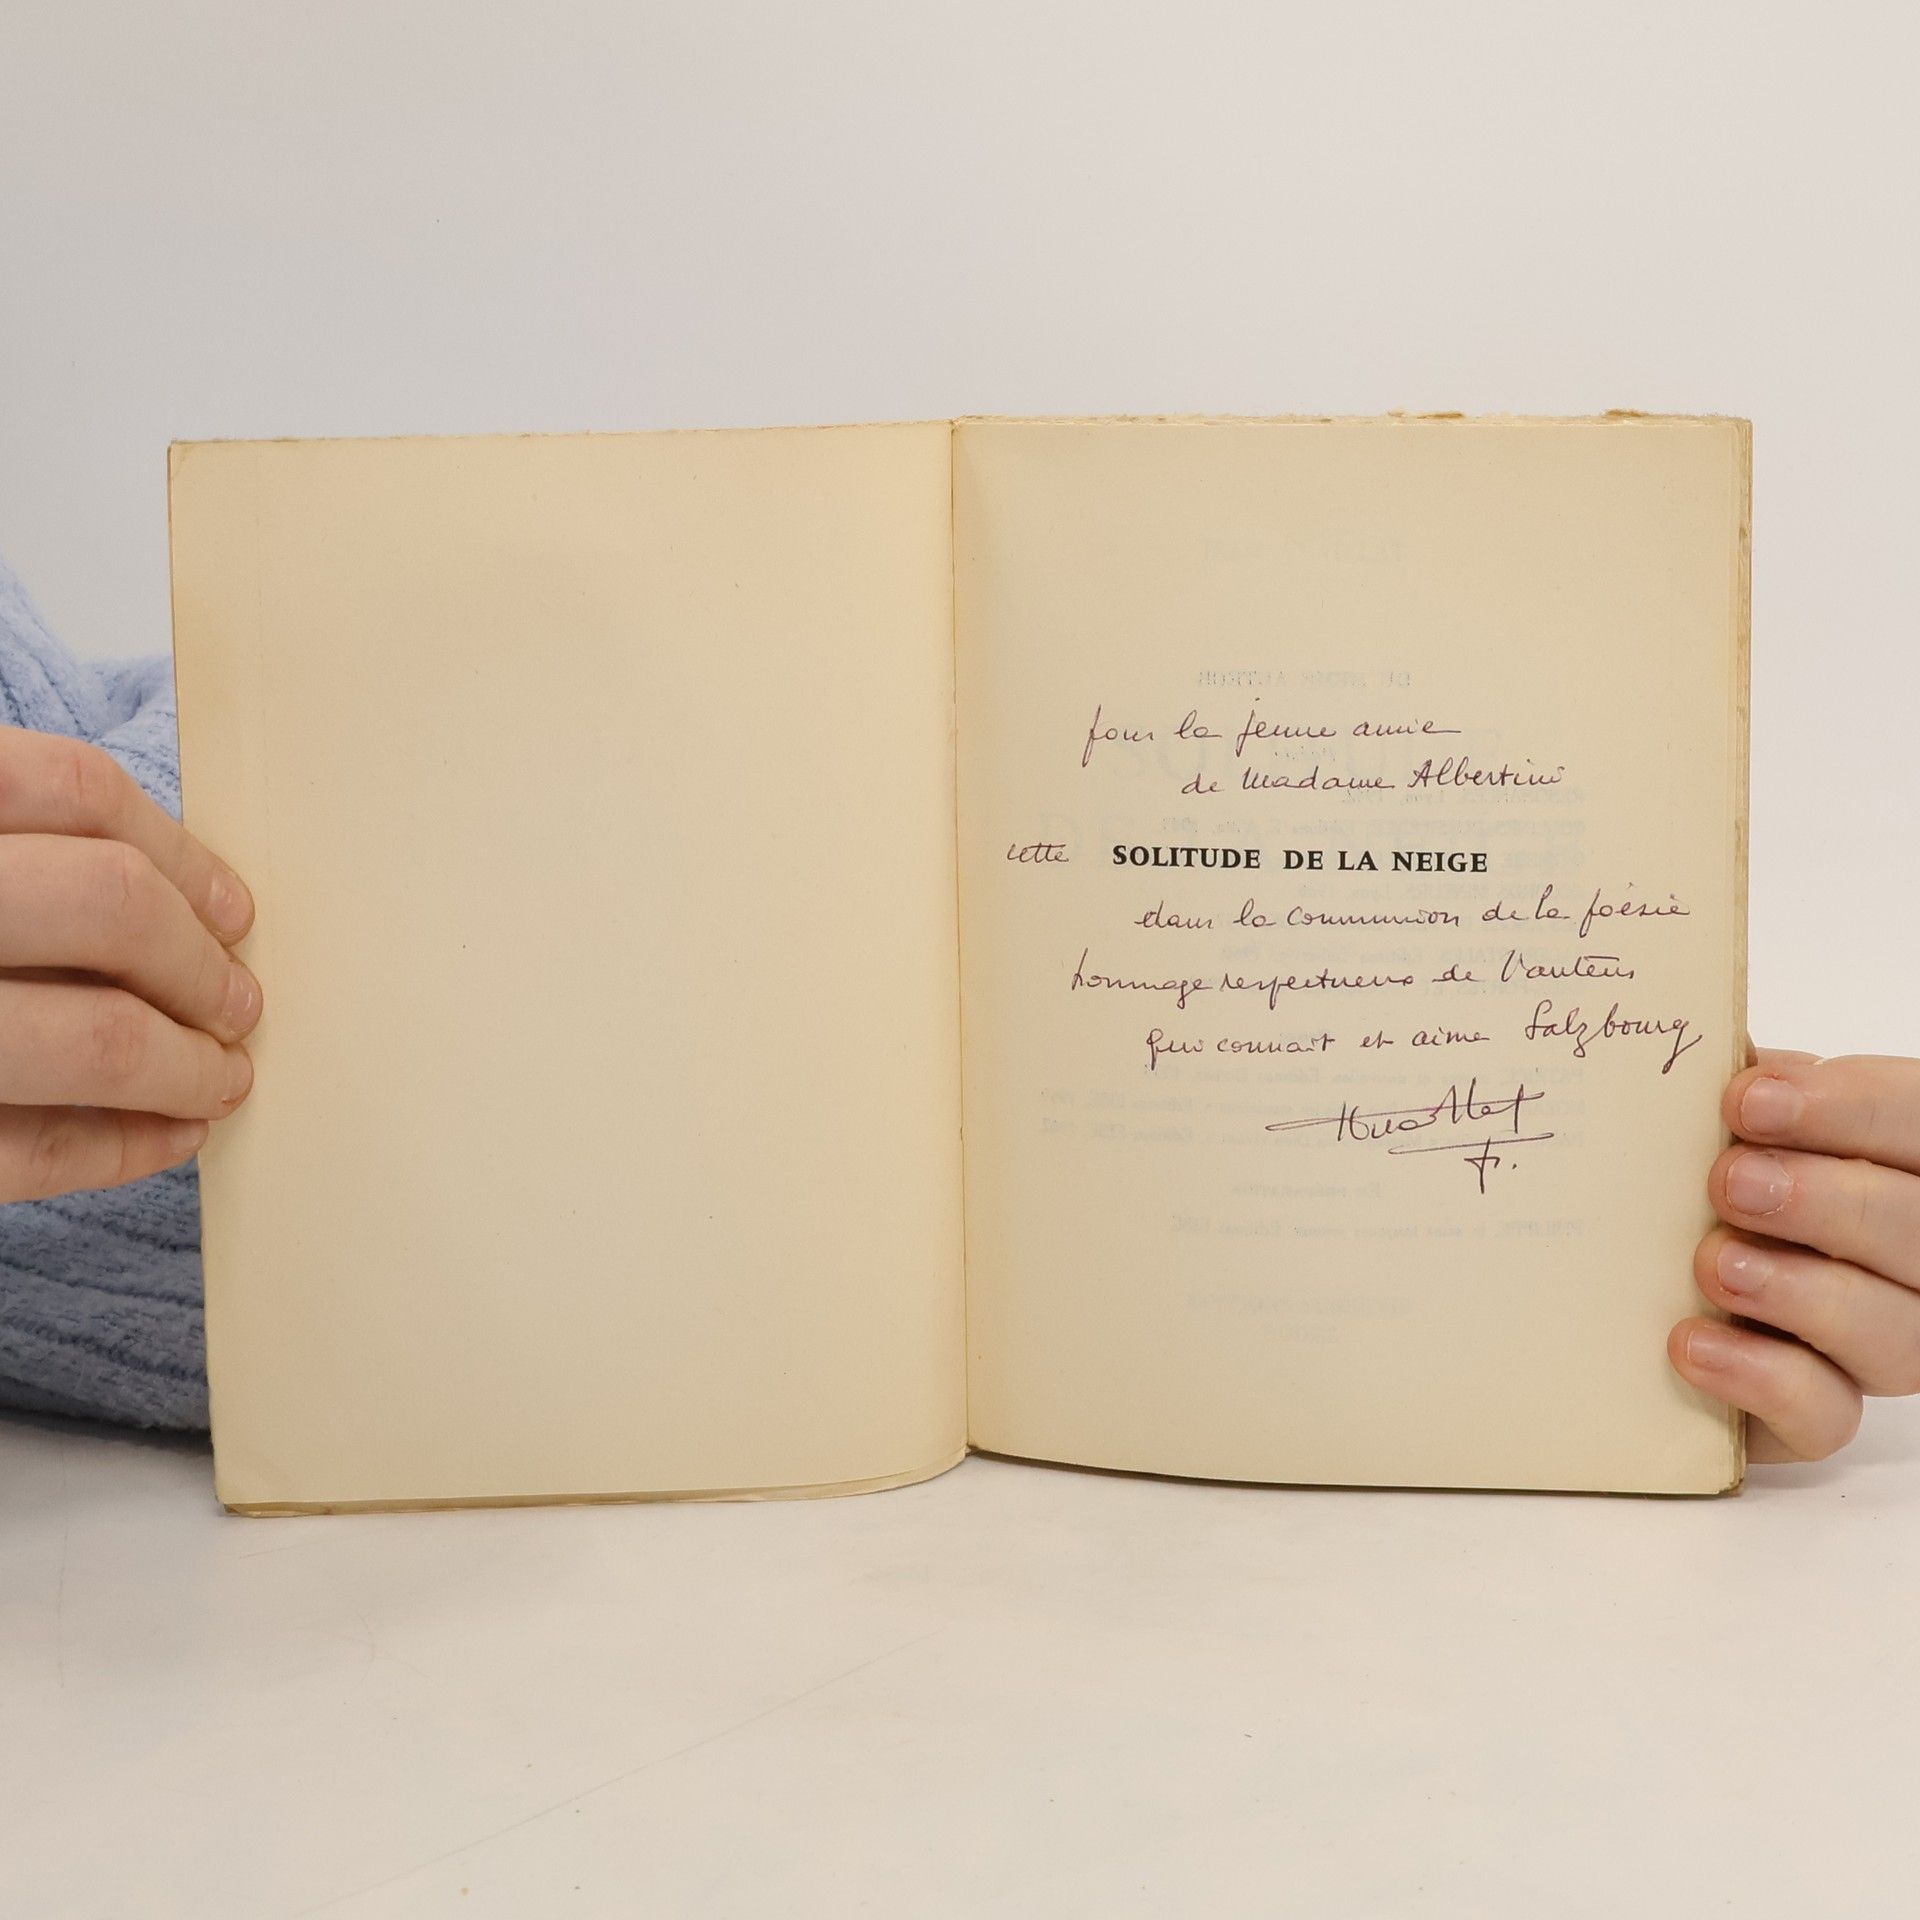 pour la jeune amie
de Madame Albertini
cette SOLITUDE DE LA NEIGE
dans la communion de la poésie
hommage respectueux de l'auteur
qui connait et aime Salzbourg